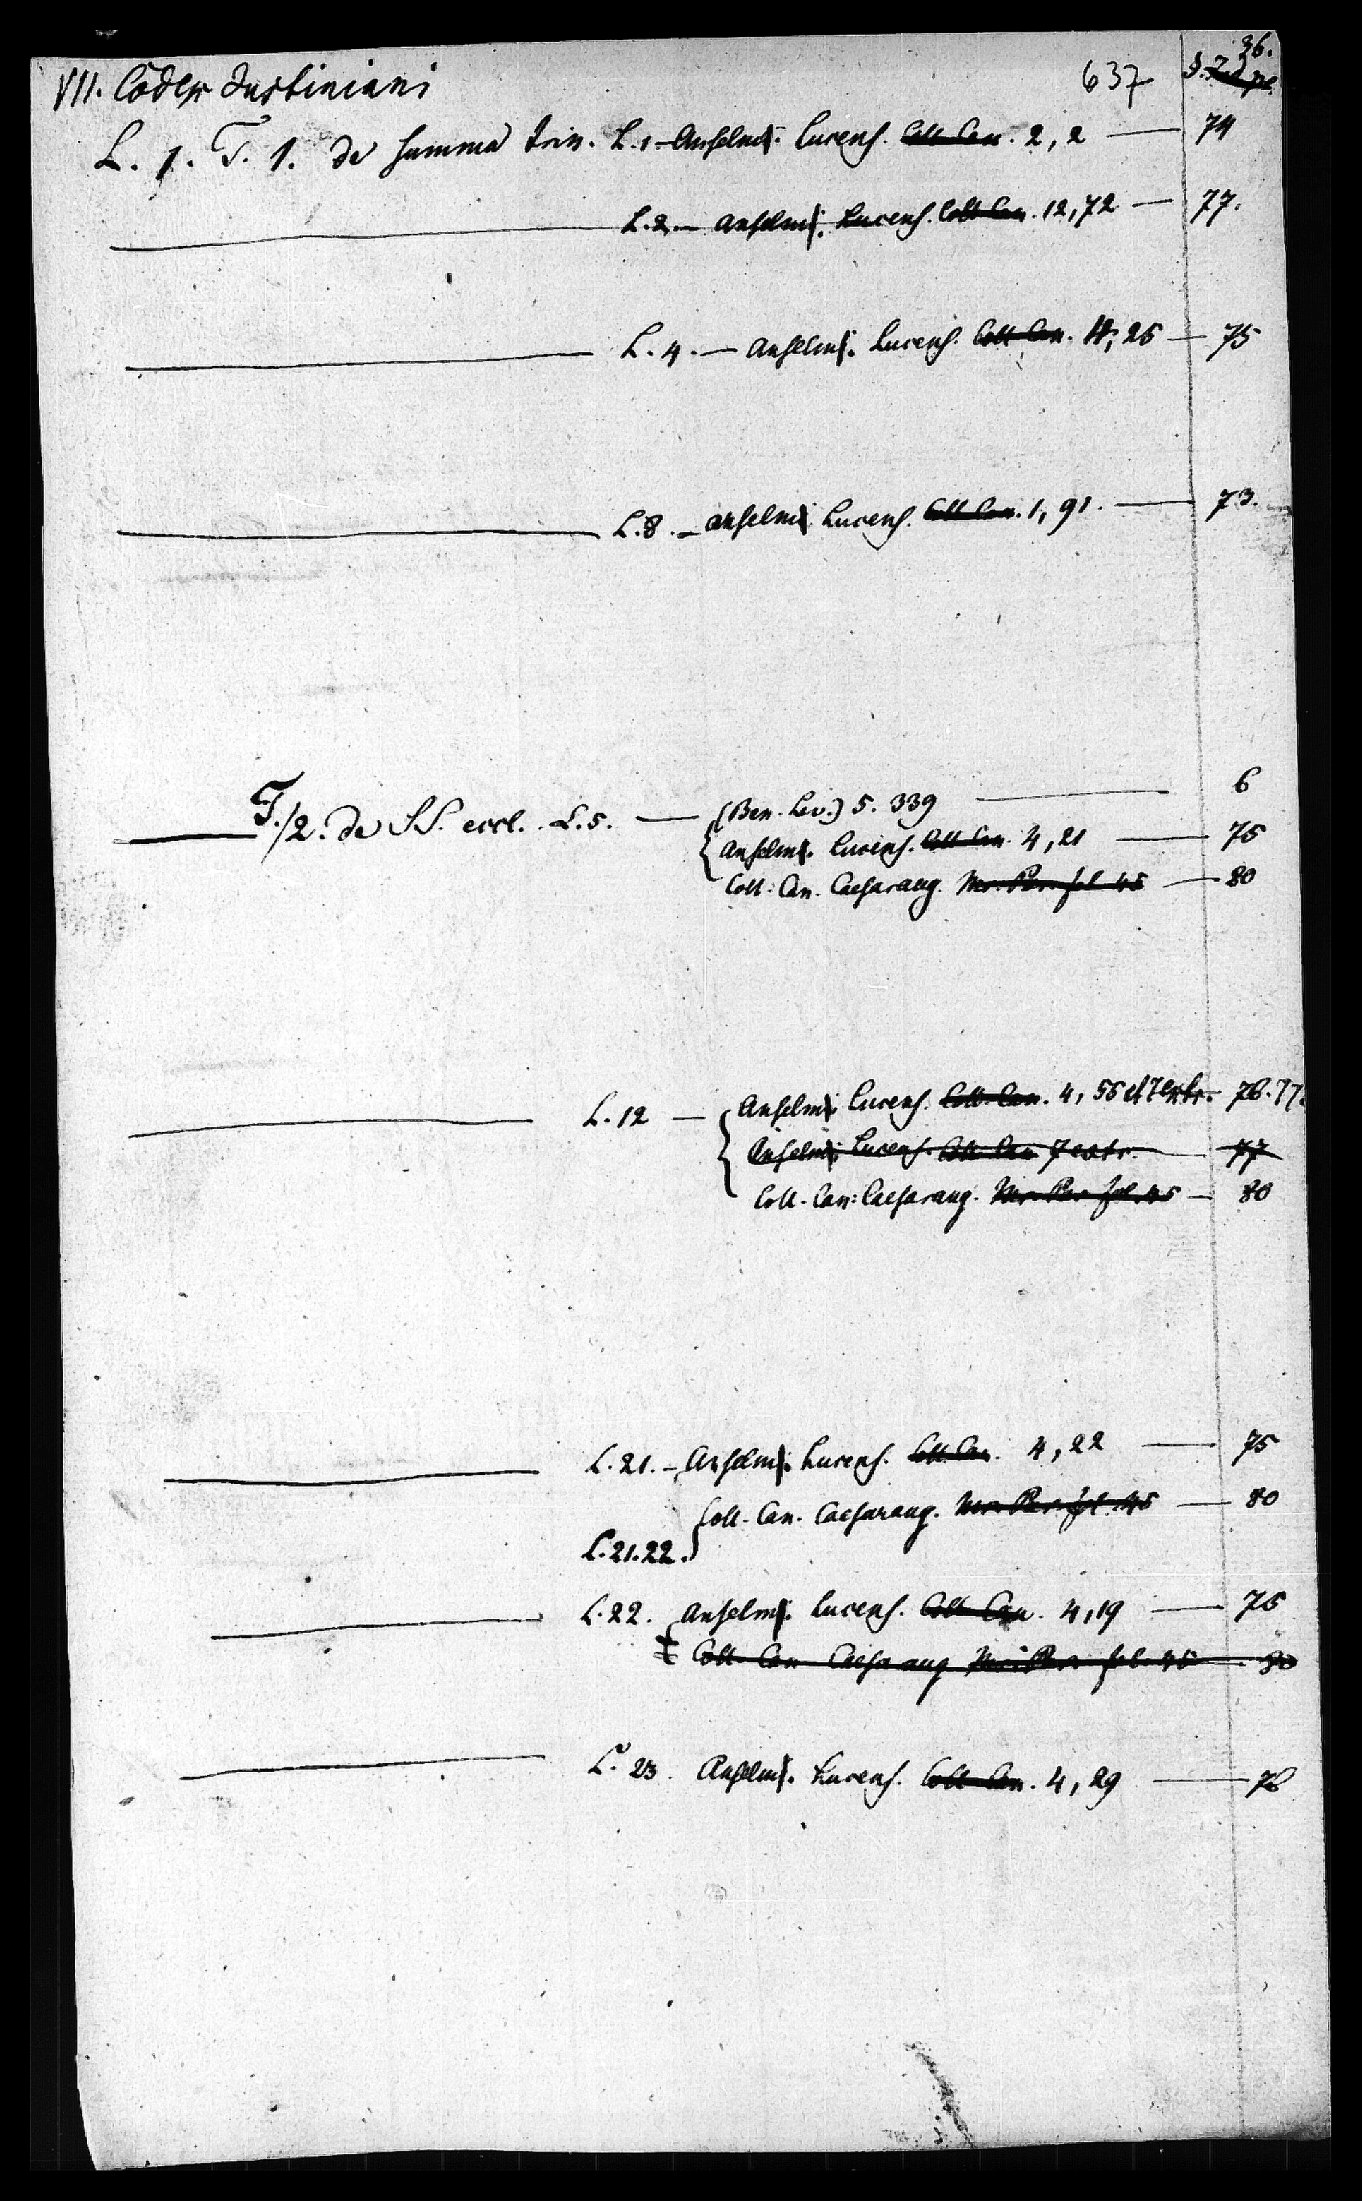 36.
VII. Codex Justiniani 637
L. 1. T. 1. de summa trin. L. 1 - Anselm. Lucens. Coll. Can. 2, 2 — 74
L. 2. — Anselm. Lucens. Coll. Can. 12, 72 — 77.
L. 4. — Anselm. Lucens. Coll. Can. 25 — 75
L. 8. — Anselm. Lucens. Coll. Can. 1, 91. — 73.
T. 2. de SS. eccl. L. 5. — (Ben. Lev.) 5. 339 — 6
Anselm. Lucens. Coll. Can. 4, 21 — 75
Coll. Can. Caesaraug. Ms. Par. fol. 45 — 80
L. 12 — Anselm. Lucens. Coll. Can. 4, 56 et 7 extr. 76. 77.
Anselm. Lucens. Coll. Can. 7 extr. — 77
Coll. Can. Caesaraug. Ms. Par. fol. 45 — 80
L. 21. — Anselm. Lucens. Coll. Can. 4, 22 — 75
Coll. Can. Caesaraug. Ms. Par. fol. 45 — 80
L. 21. 22.
L. 22. Anselm. Lucens. Coll. Can. 4, 19 — 75
Coll. Can. Caesaraug. Ms. Par. fol. 45 — 80
L. 23. Anselm. Lucens. Coll. Can. 4, 29 — 76